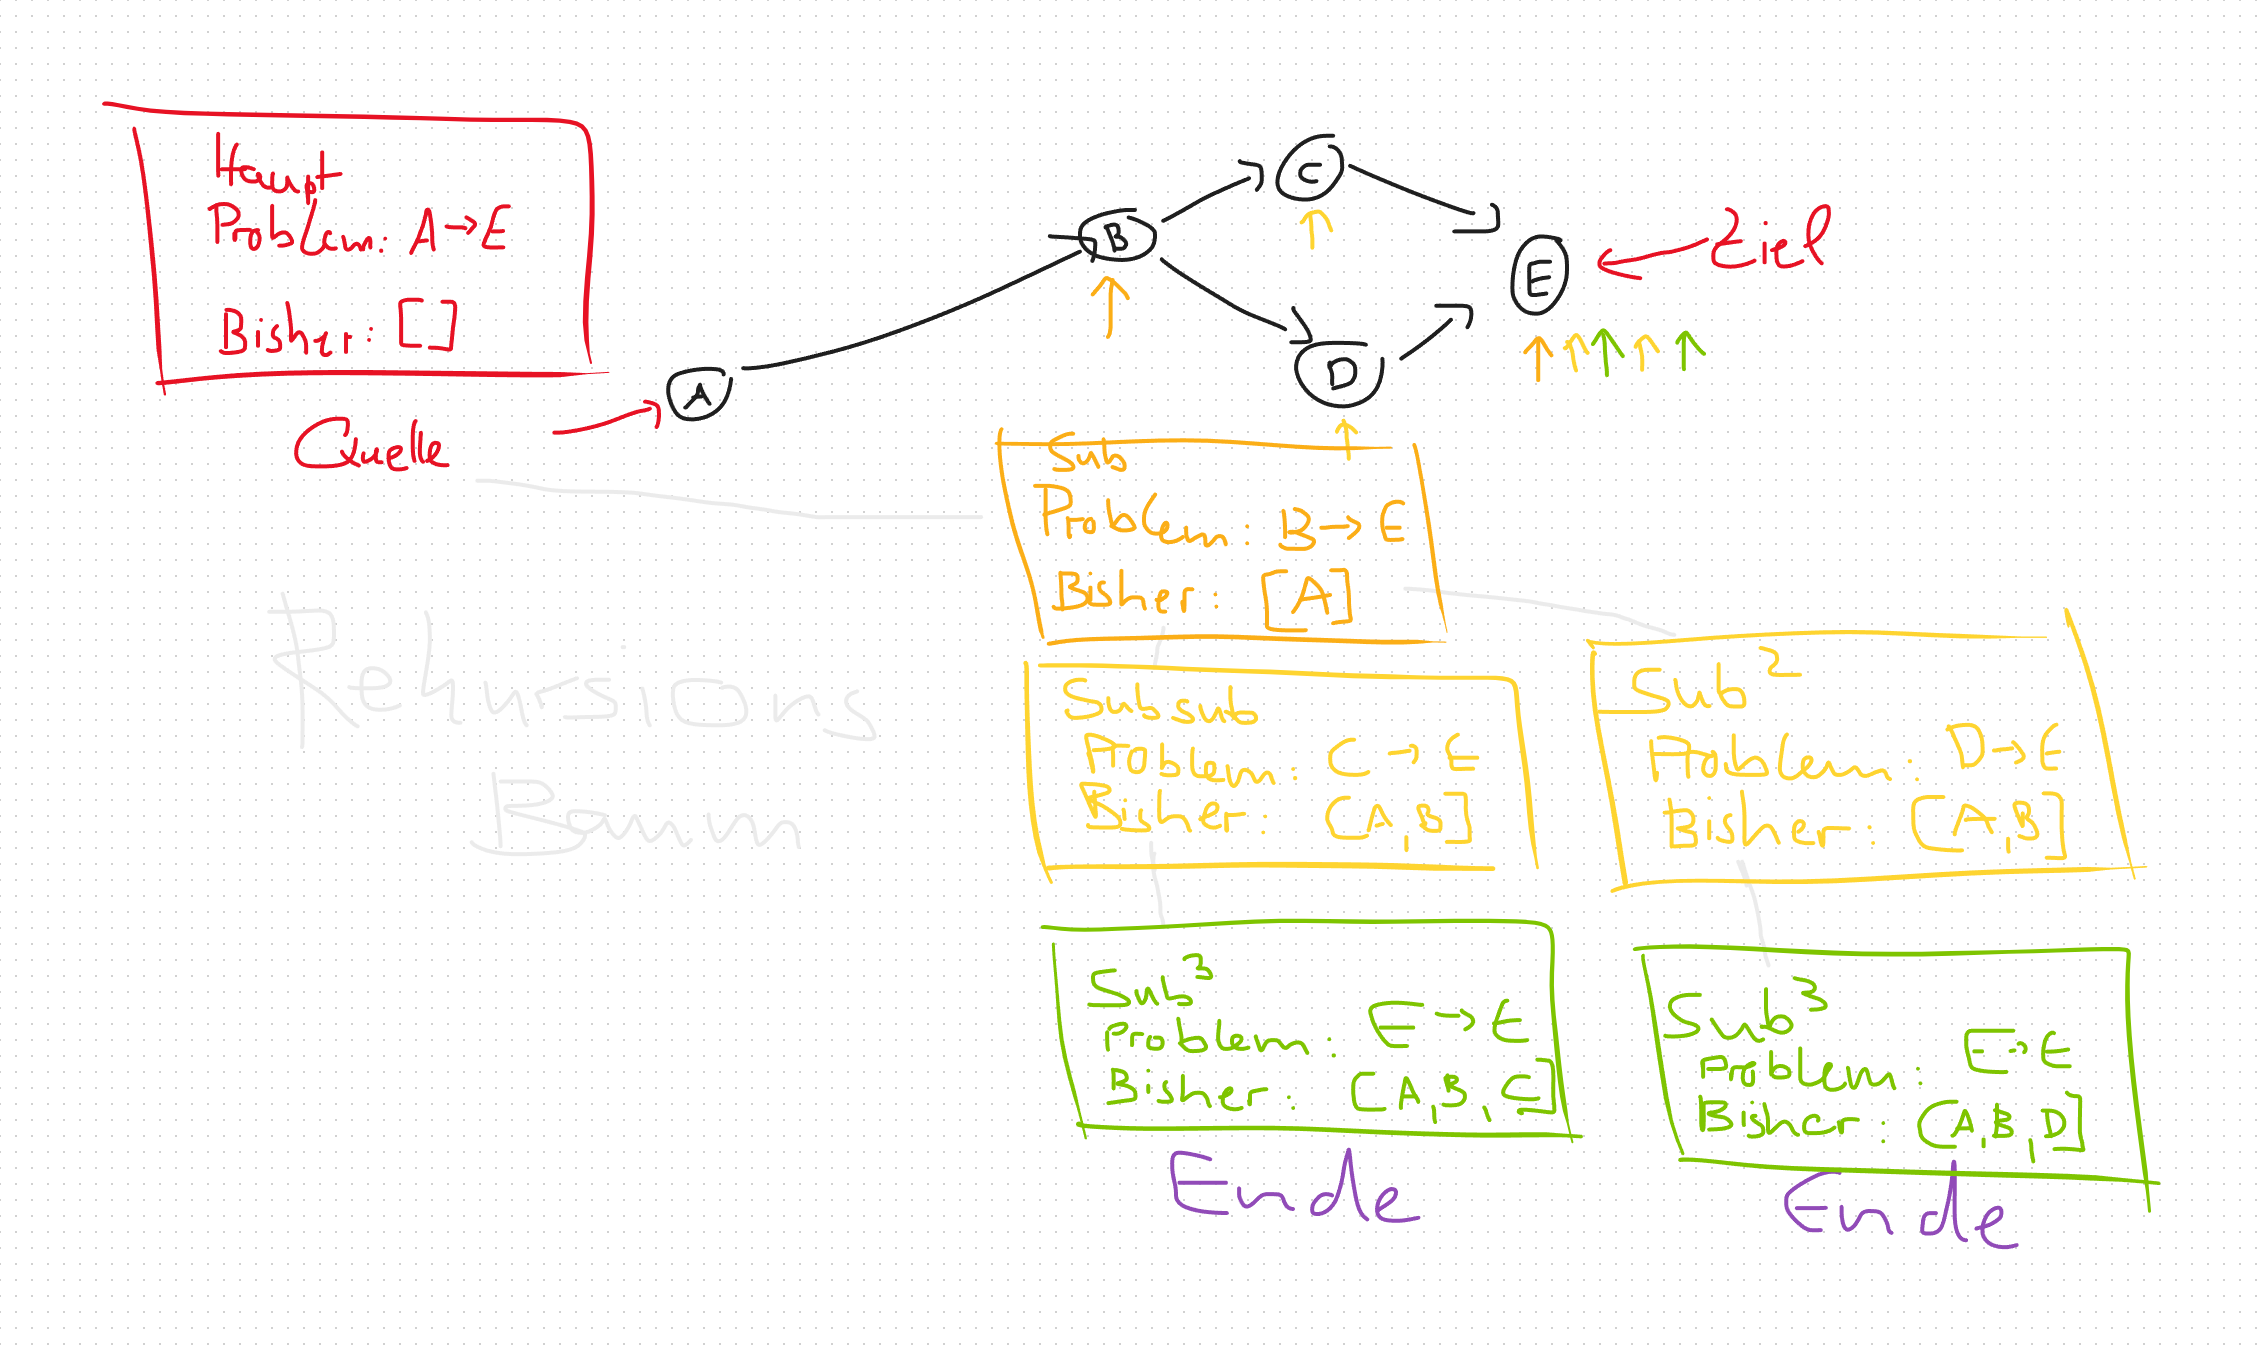 Haupt
Problem: A → E
Bisher: []
Quelle
A
B
C
D
E
Ziel
Sub
Problem: B → E
Bisher: [A]
Rekursions
Baum
Subsub
Problem: C → E
Bisher: [A,B]
Sub²
Problem: D → E
Bisher: [A,B]
Sub³
Problem: E → E
Bisher: [A,B,C]
Ende
Sub³
Problem: E → E
Bisher: [A,B,D]
Ende